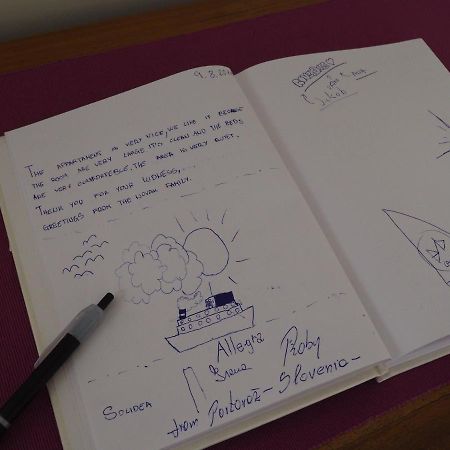 9.8.20
THE APPARTAMENT IS VERY NICE, WE LIKE IT BECAUSE
THE ROOM ARE VERY LARGE. IT'S CLEAN AND THE BEDS
ARE VERY COMFORTEBLE. THE AREA IS VERY QUIET.
THANK YOU FOR YOUR KIDNESS,...
GREETINGS FROM THE NOVAK FAMILY.
Allegra
SOLIDEA
from Portorož - Slovenia -
Jakob